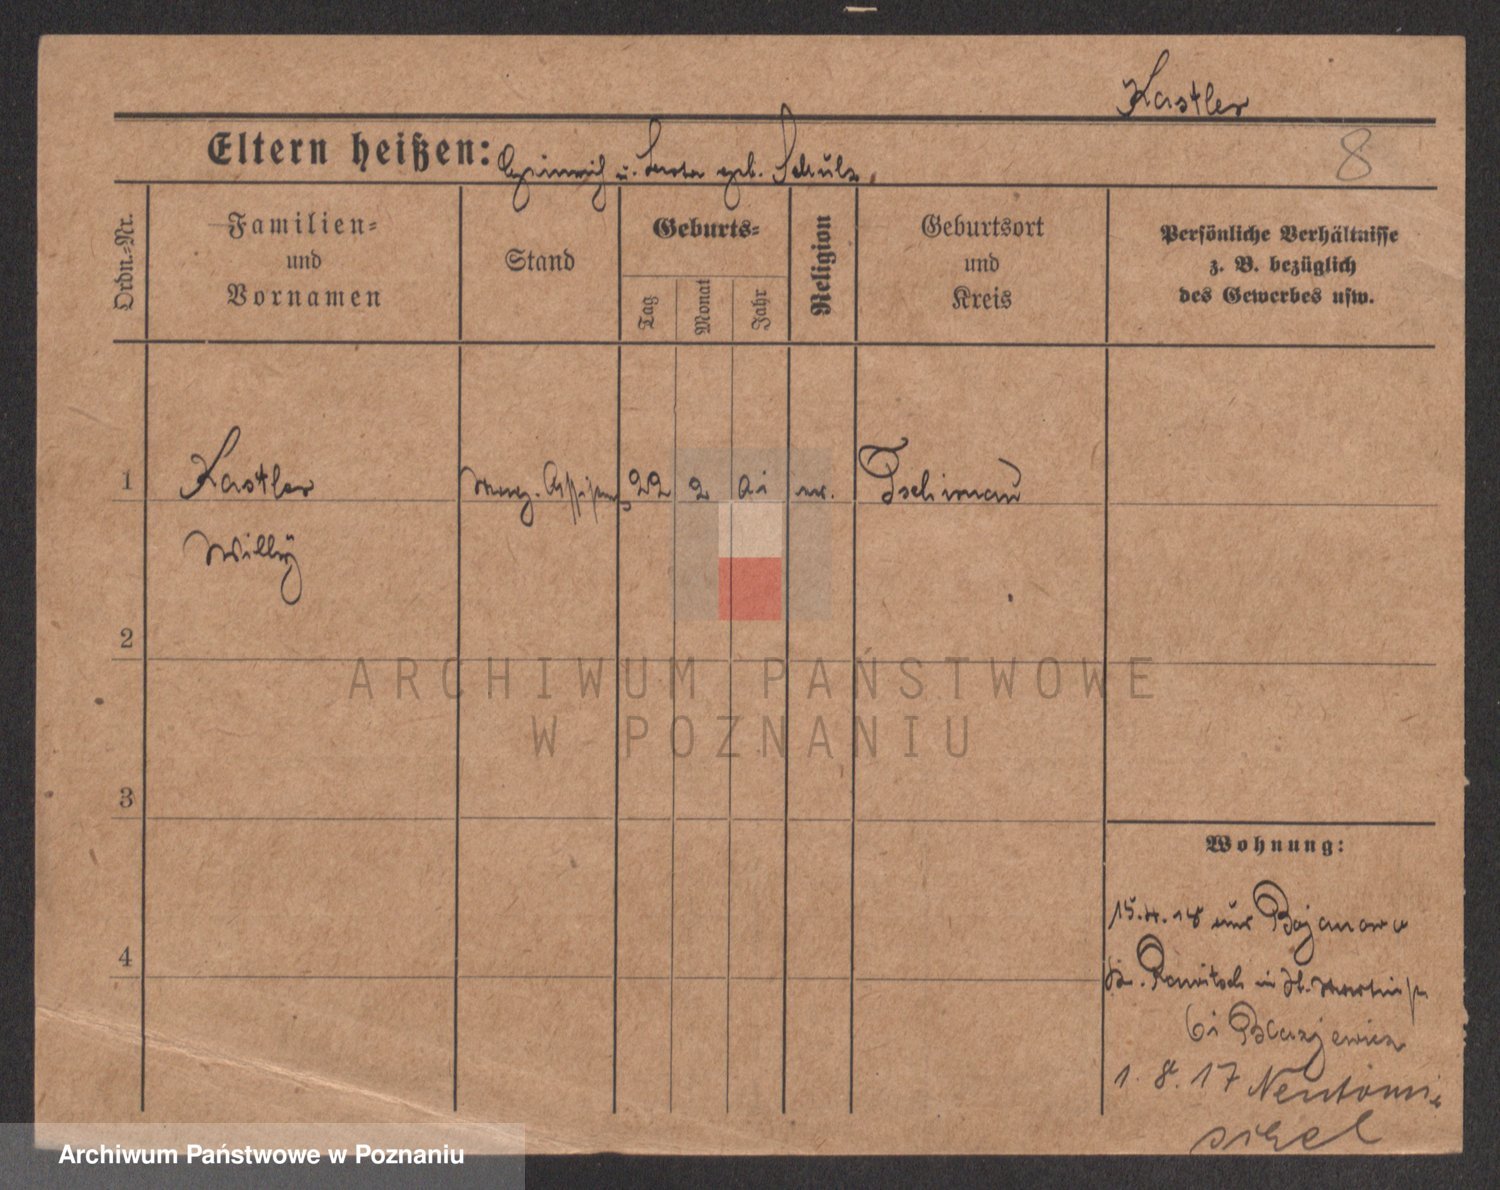 Kastler
8
Eltern heißen: Heinrich u. geb. Schulz.
Ordn.-Nr.
Familien-
und
Vornamen
Stand
Geburts-
Tag
Monat
Jahr
Religion
Geburtsort
und
Kreis
Persönliche Verhältnisse
z. B. bezüglich
des Gewerbes usw.
1 Kastler 22 2 ev. Tschirnau
Willy
2
ARCHIWUM PAŃSTWOWE
W POZNANIU
3
Wohnung:
15.4. aus Bojanowo
4
Rawitsch in St. Martinstr.
1.8.17 Neutomi-
schel
Archiwum Państwowe w Poznaniu